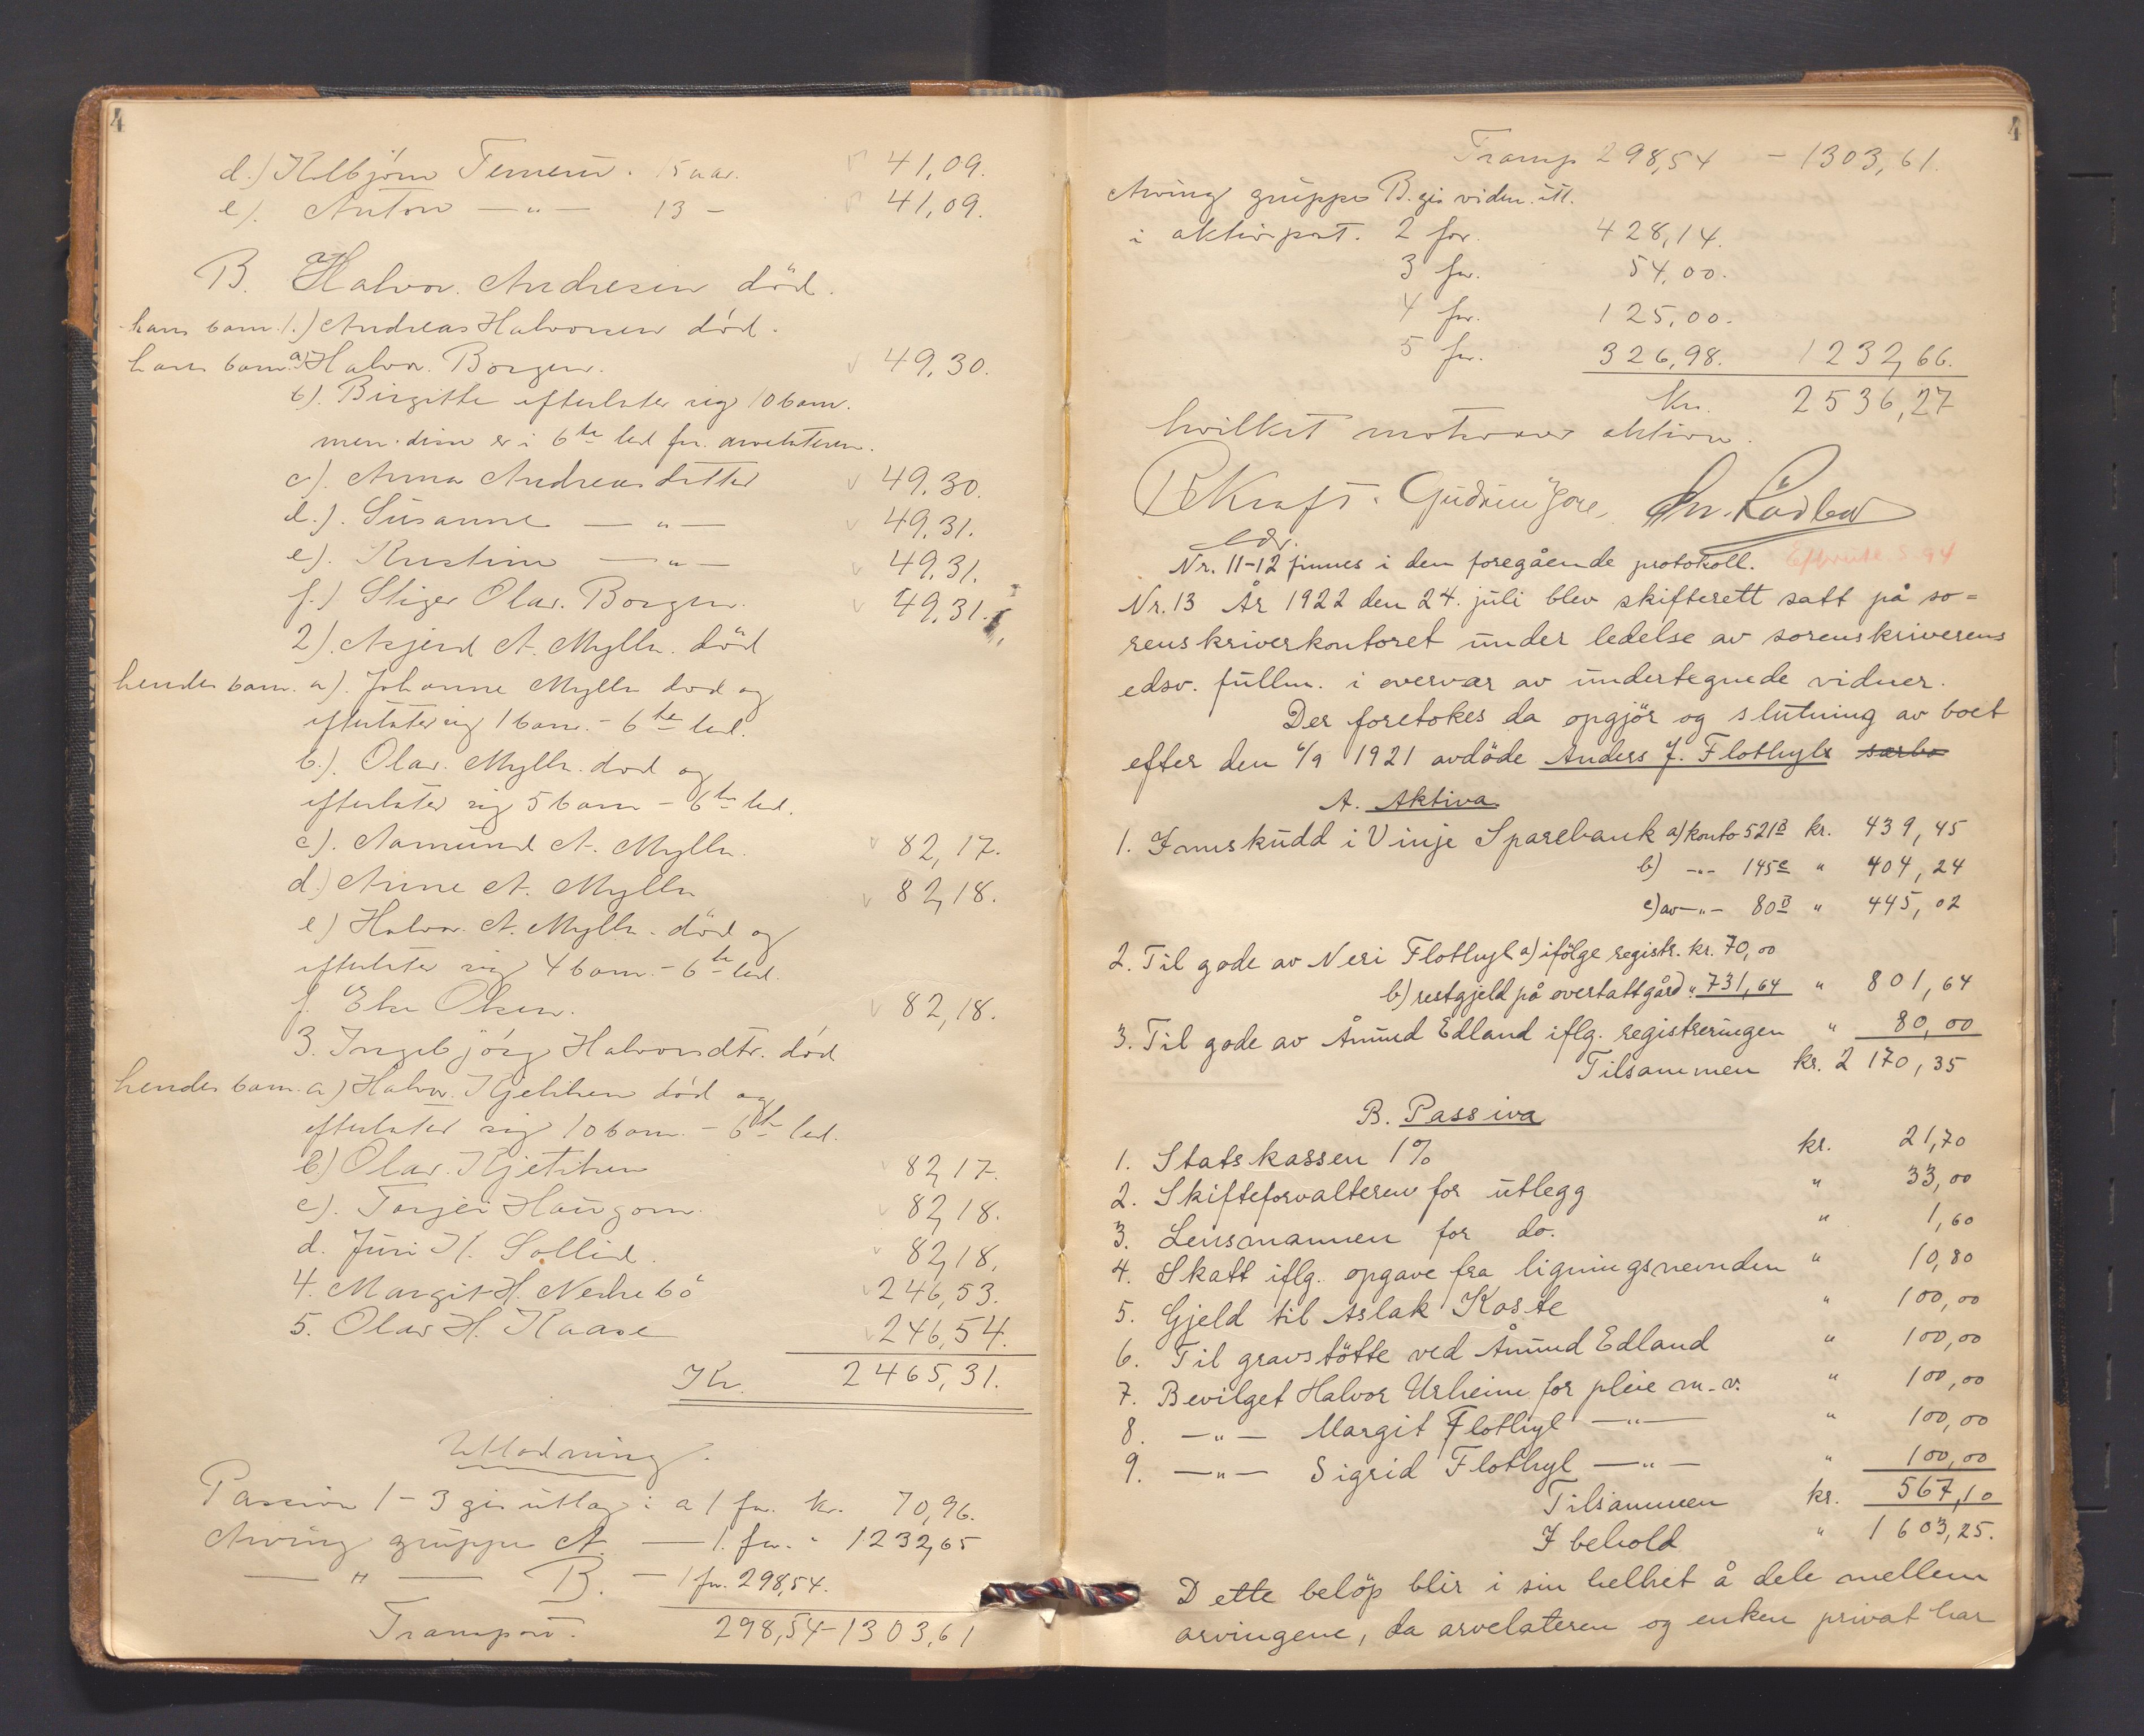 4
d.) Kolbjörn Temem. 15 aar. 41,09.
e). Anton —„— 13 – 41,09.
B. Halvor Andresen död.
hans barn 1.) Andreas Halvorsen död.
hans barn a) Halvor Borgen. 49,30.
b). Birgitte efterlater sig 10 barn.
men disse er i 6te led fra arvelateren.
c). Anna Andreasdatter 49,30.
d.). Susanne —„— 49,31.
e). Kristine —„— 49,31.
f.) Stiger Olav. Borgen. 49,31.
2). Asjerd A. Mylla. död
hendes barn. a). Johanne Mylla död og
efterlater sig 1 barn. – 6te led.
b.). Olav. Mylla. död og
efterlater sig 5 barn – 6te led.
c). Aamund A. Mylla. 82,17.
d.) Anne A. Mylla 82,18.
e) Halvor A. Mylla. död og
efterlater sig 4 barn. – 6te led.
f. Eline Olsen. 82,18.
3. Ingebjörg Halvorsdtr. död
hendes barn. a) Halvor Kjetilsen död og
efterlater sig 10 barn. – 6te led.
b.) Olav. Kjetilsen 82,17.
c). Torjer Haugom. 82,18.
d. Juri H. Sollid. 82,18.
4. Margit H. Nerhebö 246,53.
5. Olav H. Kaase 246,54.
Kr. 2465,31.
Utlodning.
Passiva 1–3 gis utlæg i a 1 for. kr. 70,96.
Arving gruppe A. — 1. for. „ 1232,65
—„— B. – 1 for. 298,54.
Transport. 298,54 – 1303,61
4
Transp 298,54 – 1303,61.
Arving gruppe B. gis viden. utl.
i aktivpost. 2 for. 428,14.
3 for. 54,00.
4 for. 125,00.
5 for. 326,98. 1232,66.
Kr. 2536,27
hvilket motsvarer aktiva.
Bekraft. Gudrun Jore,
edv.
Nr. 11-12 finnes i den foregående protokoll.
Nr. 13 År 1922 den 24. juli blev skifterett satt på so=
renskriverkontoret under ledelse av sorenskriverens
edsv. fullm. i overvær av undertegnede vidner.
Der foretokes da opgjör og slutning av boet
efter den 6/9 1921 avdöde Anders J. Flothyls særbo
A. Aktiva
1. Innskudd i Vinje Sparebank a) konto 521B kr. 439,45
b) –„– 145C „ 404,24
c) av –„– 80B „ 445,02
2. Til gode av Neri Flothyl a) ifölge registr. kr. 70,00
b) restgjeld på overtatt gård „ 731,64 „ 801,64
3. Til gode av Åmund Edland iflg. registreringen „ 80,00
Tilsammen kr. 2 170,35
B. Passiva
1. Statskassen 1% kr. 21,70
2. Skifteforvalteren for utlegg „ 33,00
3. Lensmannen for do. „ 1,60
4. Skatt iflg. opgave fra ligningsnevnden „ 10,80
5. Gjeld til Aslak Kaste „ 100,00
6. Til gravstötte ved Åmund Edland „ 100,00
7. Bevilget Halvor Urheim for pleie m.v. „ 100,00
8. –„– Margit Flothyl —„— „ 100,00
9. —„— Sigrid Flothyl —„— „ 100,00
Tilsammen kr. 567,10
I behold „ 1 603,25.
Dette belöp blir i sin helhet å dele mellem
arvingene, da arvelateren og enken privat har